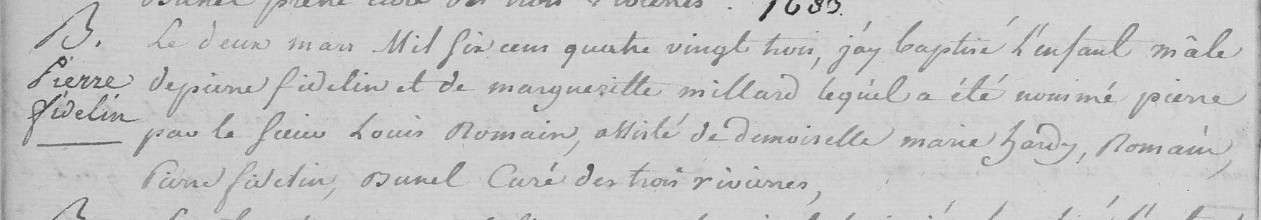 Bunel prêtre curé des trois rivieres. 1683.
B. Le deux mars Mil Six cens quatre vingt trois, j'ay baptisé L'enfant mâle
Pierre depierre fidelin et de margueritte millard lequel a été nommé pierre
fidelin par le Sieur Louis Romain, assisté de demoiselle marie hardy, Romain,
Pierre fidelin, Bunel Curé des trois rivieres,
B.